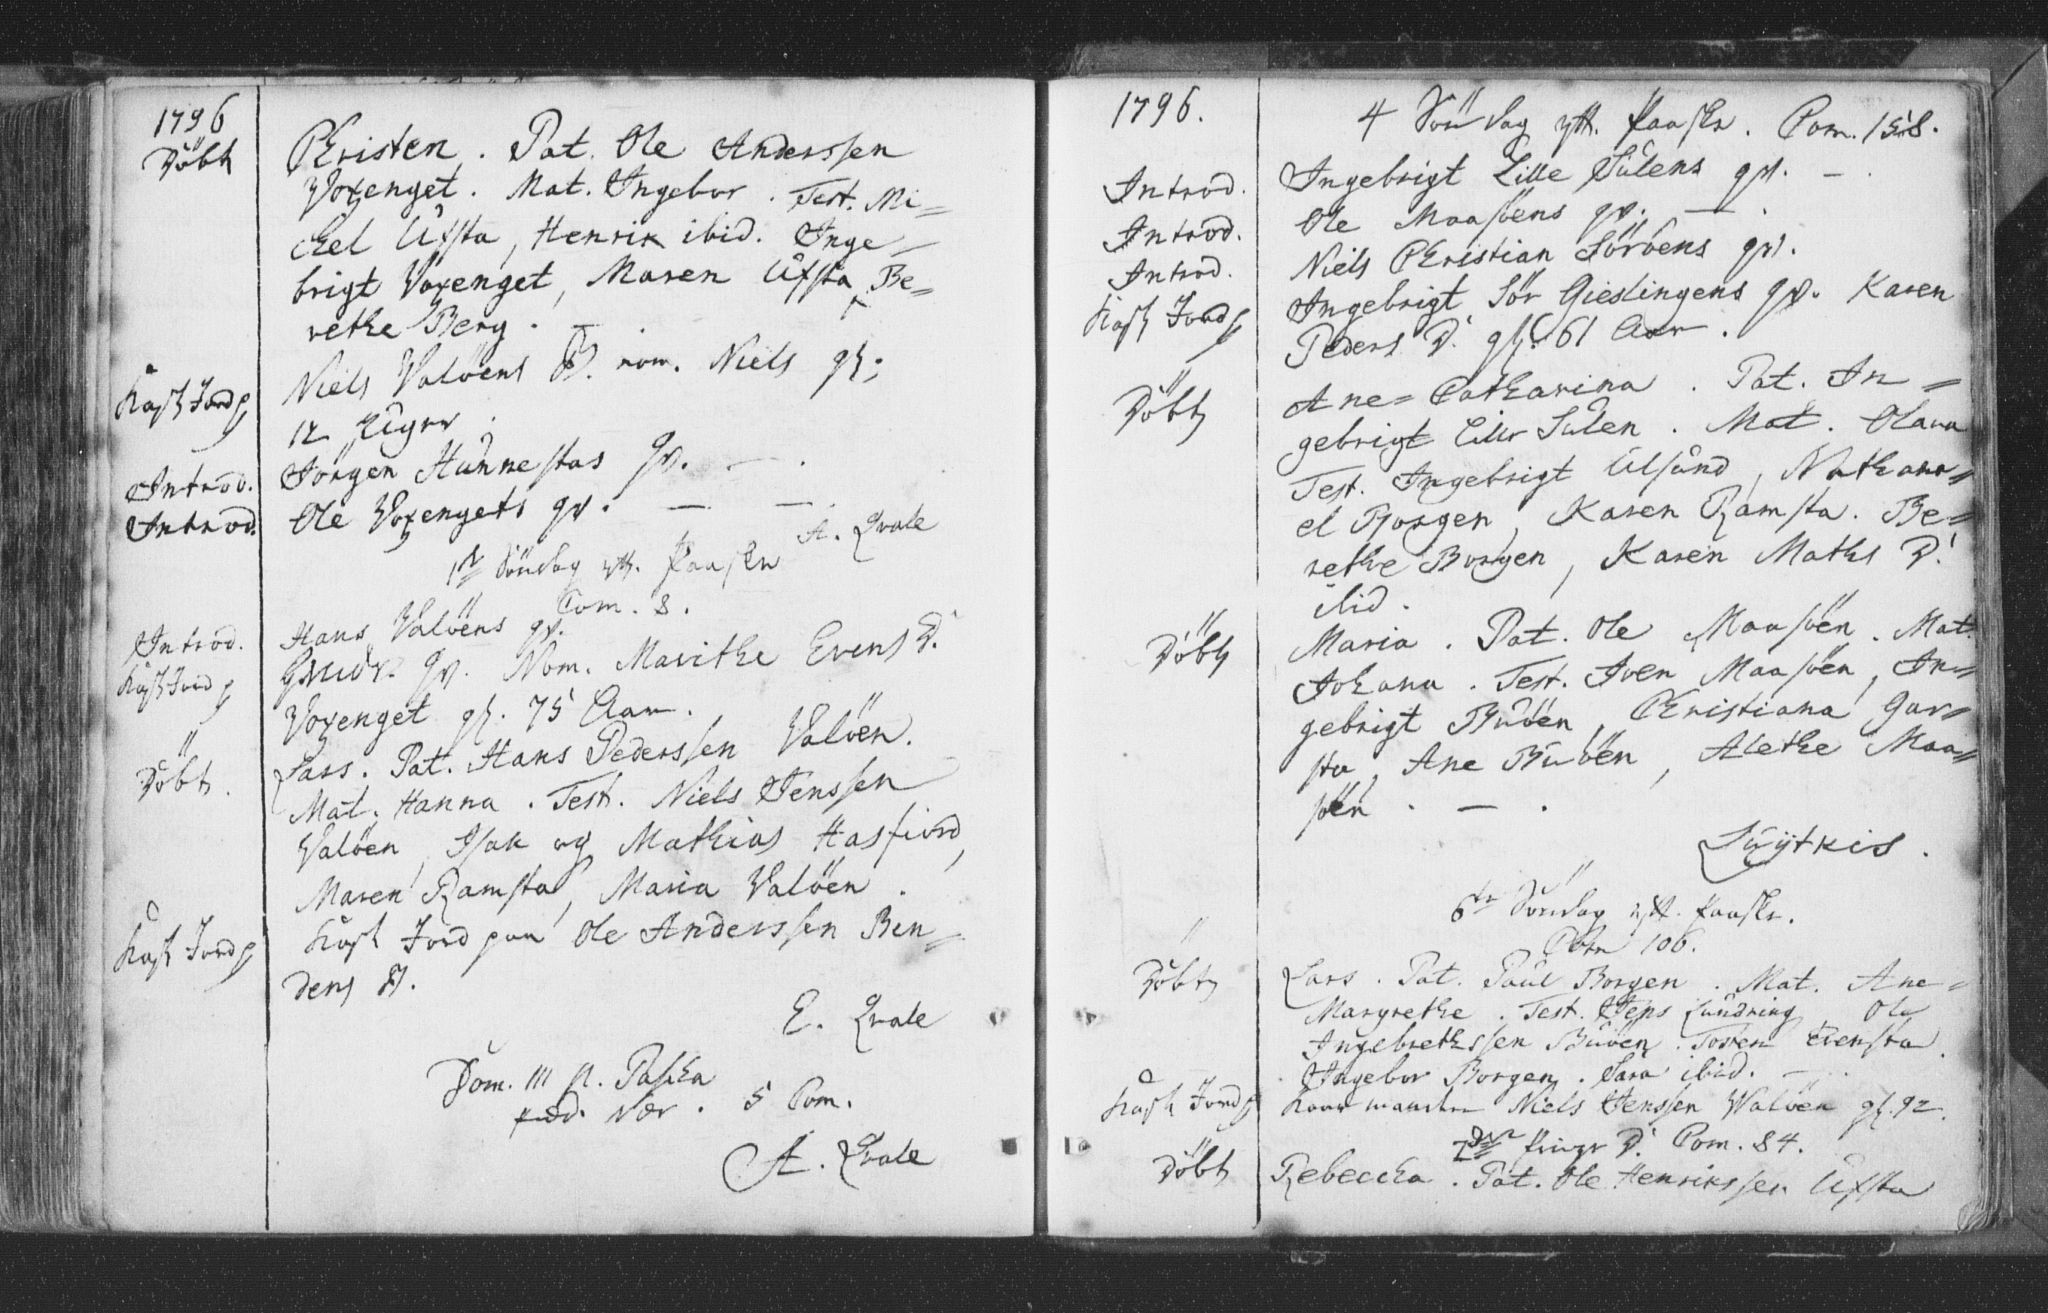 1796
Döbt Christen. Pat. Ole Anderssen
Voxenget. Mat. Ingebor. Test. Mi=
chel Ufsta, Henrik ibid. Inge=
brigt Voxenget, Maren Ufsta, Be=
rethe Berg. —.
Kast Jord p Niels Valöens B. nom. Niels gl:
12 Uger.
Introd. Jörgen Hunnestas qv. —.
Introd. Ole Voxengets qv. — —
A. Qvale
1ste Söndag eft. Paaske
Com. 8.
Introd. Hans Valöens qv.
Kast Jord p qv. Nom. Marithe Evens D.
Voxenget gl. 75 Aar.
Döbt. Lars. Pat. Hans Pederssen Valöen.
Mat. Hanna. Test. Niels Jenssen
Valöen, Isak og Mathias Hasfiord,
Maren Ramsta, Maria Valöen.
Kast Jord p Kast Jord paa Ole Anderssen Ren=
dens B.
E. Qvale
Dom. III p. Pascha
præd. Nær. 5 Com.
A. Qvale
1796.
4 Söndag eft. Paaske. Com. 158.
Introd. Ingebrigt Lille Sulens qv. —.
Introd. Ole Maasöens qv. —.
Introd. Niels Christian Söröens qv.
Kast Jord p Ingebrigt Sör Gieslingens qv. Karen
Peders D. gl. 61 Aar.
Döbt Ane=Catharina. Pat. In=
gebrigt Lille Sulen. Mat. Olava
Test. Ingebrigt Ulsund, Nathana=
el Borgen, Karen Ramsta. Be=
rethe Borgen, Karen Maths D.
ibid.
Döbt Maria. Pat. Ole Maasöen. Mat.
Johana. Test. Iven Maasöen, In=
gebrigt Buöen, Christiana Gar=
sta, Ane Buöen, Alethe Maa=
söen. —.
Suytkis.
6te Söndag eft. Paaske.
Com 106.
Döbt Lars. Pat. Paul Borgen. Mat. Ane=
Margrethe. Test. Jens Lundring Ole
Ingebrethssen Buöen. Toren Evensta
Ingebor Borgen. Sara ibid. —.
Kast Jord p Niels Jenssen Valöen gl. 92.
2den Pinse D. Com. 84.
Döbt Rebeccha. Pat. Ole Henrikssen Ufsta